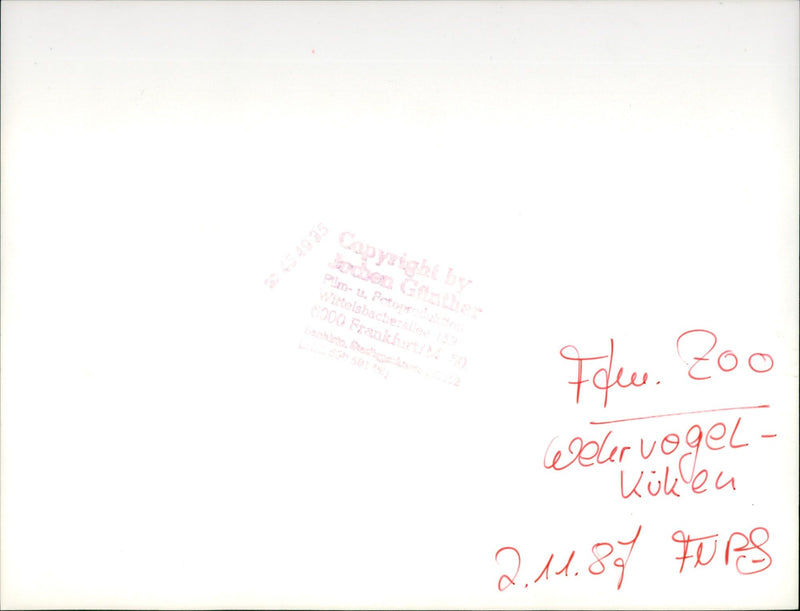 45 49 95
Copyright by
Jochen Günther
Film- u. Fotoproduktion
Wittelsbacherallee
6000 Frankfurt/M 60
Ffm. Zoo
Wehrvogel-
Küken
2.11.87 FNP